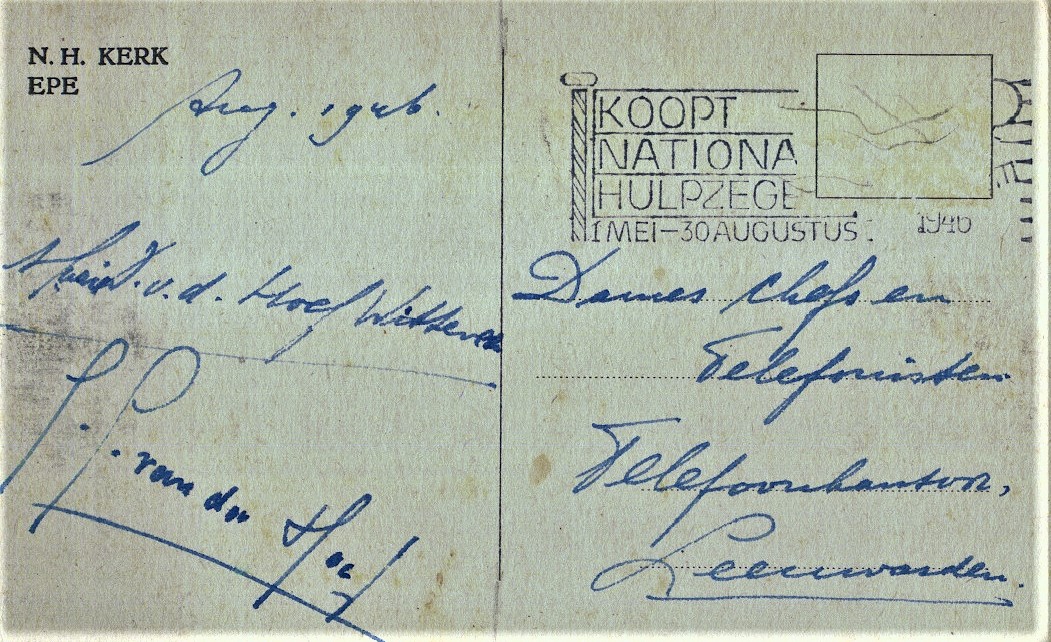 N. H. KERK
EPE
Aug. 1946.
v. d. Hoef Witteveen
J. J. van der Hoef
KOOPT
NATIONA
HULPZEGE
1 MEI–30 AUGUSTUS.
1946
Dames chefs en
Telefonisten
Telefoonkantoor,
Leeuwarden.